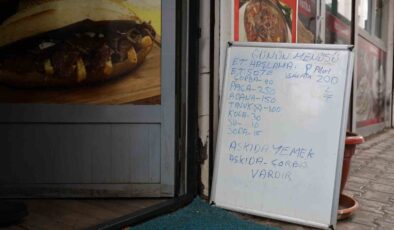 GÜNÜN MENÜSÜ
ET HAŞLAMA: Pilav
ET SOTE SALATA 200
ÇORBA-90
PAÇA-250
ADANA-150
TAVUKSA-100
KOLA-30
SU-10
SODA-15
ASKIDA YEMEK
ASKIDA-ÇORBA
VARDIR